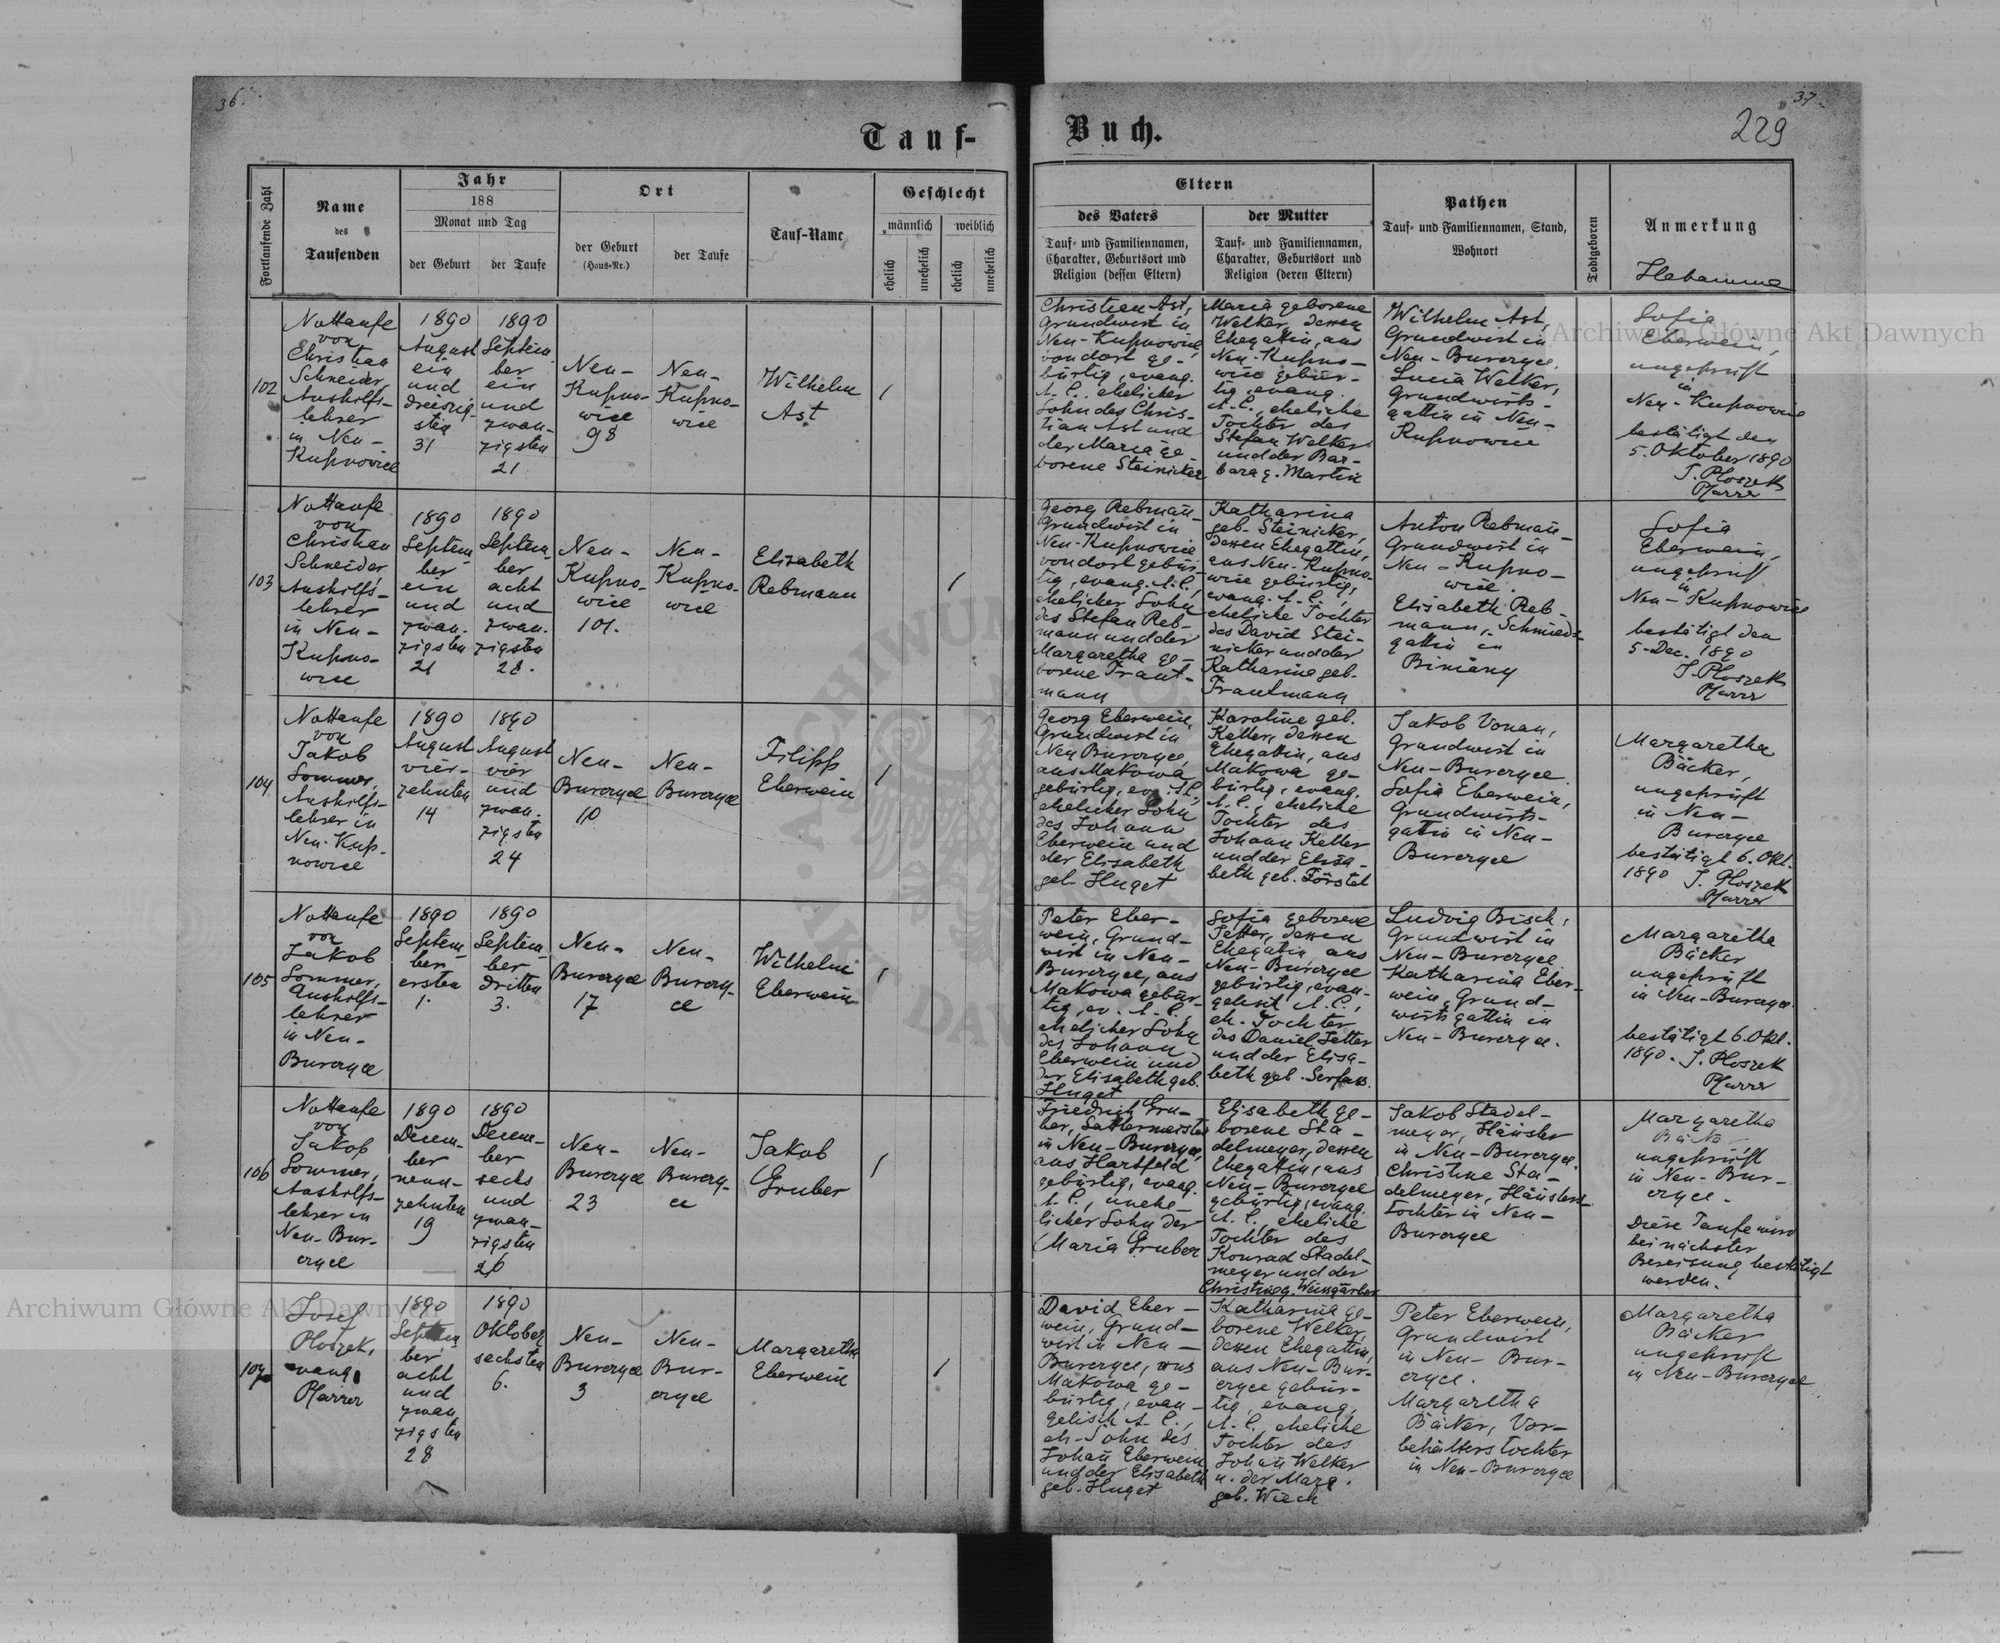 36.
37
229
Tauf-
Buch.
Fortlaufende Zahl
Name
des
Taufenden
Jahr
188
Monat und Tag
der Geburt
der Taufe
Ort
der Geburt
(Haus-Nr.)
der Taufe
Tauf-Name
Geschlecht
männlich
weiblich
ehelich
unehelich
ehelich
unehelich
Eltern
des Vaters
Tauf- und Familiennamen,
Charakter, Geburtsort und
Religion (dessen Eltern)
der Mutter
Tauf- und Familiennamen,
Charakter, Geburtsort und
Religion (deren Eltern)
Pathen
Tauf- und Familiennamen, Stand,
Wohnort
Todtgeboren
Anmerkung
Hebamme
102
Nottaufe
von
Christian
Schneider,
Aushilfs-
lehrer
in Neu-
Kupnowice
1890
August
ein
und
dreissig-
sten
31
1890
Septem-
ber
ein
und
zwan-
zigsten
21
Neu-
Kupno-
wice
98
Neu-
Kupno-
wice
Wilhelm
Ast
1
Christian Ast,
Grundwirt in
Neu-Kupnowice
von dort ge-
bürtig, evang.
A. C., ehelicher
Sohn des Chris-
tian Ast und
der Maria ge-
borene Steinicker
Maria geborene
Welker, dessen
Ehegattin, aus
Neu-Kupno-
wice gebür-
tig, evang.
A. C., eheliche
Tochter des
Stefan Welker
und der Bar-
bara g. Martin
Wilhelm Ast,
Grundwirt in
Neu-Burczyce.
Lucia Welker,
Grundwirts-
gattin in Neu-
Kupnowice
Sofia
Eberwein,
ungeprüft
in
Neu-Kupnowice
bestätigt den
5. Oktober 1890
J. Ploszek
Pfarrer
103
Nottaufe
von
Christian
Schneider
Aushilfs-
lehrer
in Neu-
Kupno-
wice
1890
Septem-
ber
ein
und
zwan-
zigsten
21
1890
Septem-
ber
acht
und
zwan-
zigsten
28.
Neu-
Kupno-
wice
101.
Neu-
Kupno-
wice
Elisabeth
Rebmann
1
Georg Rebmañ
Grundwirt in
Neu-Kupnowice
von dort gebür-
tig, evang. A. C.,
ehelicher Sohn
des Stefan Reb-
mann und der
Margaretha ge-
borene Traut-
mann
Katharina
geb. Steinicker,
dessen Ehegattin,
aus Neu-Kupno-
wice gebürtig,
evang. A. C.,
eheliche Tochter
des David Stei-
nicker und der
Katharina geb.
Trautmann
Anton Rebmañ
Grundwirt in
Neu-Kupno-
wice.
Elisabeth Reb-
mann, Schmieds-
gattin in
Sofia
Eberwein,
ungeprüft
in
Neu-Kupnowice
bestätigt den
5. Dec. 1890
J. Ploszek
Pfarrer
104
Nottaufe
von
Jakob
Sommer,
Aushilfs-
lehrer in
Neu-Kup-
nowice
1890
August
vier-
zehnten
14
1890
August
vier
und
zwan-
zigsten
24
Neu-
Burczyce
10
Neu-
Burczyce
Filipp
Eberwein
1
Georg Eberwein,
Grundwirt in
Neu Burczyce,
aus Makowa
gebürtig, ev. A.C.,
ehelicher Sohn
des Johann
Eberwein und
der Elisabeth
geb. Huget
Karoline geb.
Keller, dessen
Ehegattin, aus
Makowa ge-
bürtig, evang.
A. C., eheliche
Tochter des
Johann Keller
und der Elisa-
beth geb. Förstel
Jakob Vonau,
Grundwirt in
Neu-Burczyce.
Sofia Eberwein,
Grundwirts-
gattin in Neu-
Burczyce
Margaretha
Bäcker,
ungeprüft
in Neu-
Burczyce
bestätigt 6. Okt.
1890 J. Ploszek
Pfarrer
105
Nottaufe
von
Jakob
Sommer,
Aushilfs-
lehrer
in Neu-
Burczyce
1890
Septem-
ber
ersten
1.
1890
Septem-
ber
dritten
3.
Neu-
Burczyce
17
Neu-
Burczy-
ce
Wilhelm
Eberwein
1
Peter Eber-
wein, Grund-
wirt in Neu-
Burczyce, aus
Makowa gebür-
tig, ev. A. C.,
ehelicher Sohn
des Johann
Eberwein und
der Elisabeth geb.
Huget
Sofia geborene
Jetter, dessen
Ehegattin, aus
Neu-Burczyce
gebürtig, evan-
gelisch A. C.,
eh. Tochter
des Daniel Jetter
und der Elisa-
beth geb. Serfass.
Ludwig Bisch,
Grundwirt in
Neu-Burczyce
Katharina Eber-
wein, Grund-
wirtsgattin in
Neu-Burczyce.
Margaretha
Bäcker
ungeprüft
in Neu-Burczyce.
bestätigt 6. Okt.
1890. J. Ploszek
Pfarrer
106
Nottaufe
von
Jakob
Sommer,
Aushilfs-
lehrer in
Neu-Bur-
czyce
1890
Decem-
ber
neun-
zehnten
19
1890
Decem-
ber
sechs
und
zwan-
zigsten
26
Neu-
Burczyce
23
Neu-
Burczy-
ce
Jakob
Gruber
1
Friedrich Gru-
ber, Sattlermeister
in Neu-Burczyce,
aus Hartfeld
gebürtig, evang.
A. C., unehe-
licher Sohn der
Maria Gruber
Elisabeth ge-
borene Sta-
delmeyer, dessen
Ehegattin, aus
Neu-Burczyce
gebürtig, evang.
A. C., eheliche
Tochter des
Konrad Stadel-
meyer und der
Christine g. Weingärber
Jakob Stadel-
meyer, Häusler
in Neu-Burczyce.
Christine Sta-
delmeyer, Häuslers-
tochter in Neu-
Burczyce
Margaretha
ungeprüft
in Neu-Bur-
czyce.
Diese Taufe wird
bei nächster
Bereisung bestätigt
werden.
107
Josef
Ploszek,
evang.
Pfarrer
1890
Septem-
ber
acht
und
zwan
zigsten
28
1890
Oktober
sechsten
6.
Neu-
Burczyce
3
Neu-
Bur-
czyce
Margaretha
Eberwein
1
David Eber-
wein, Grund-
wirt in Neu-
Burczyce, aus
Makowa ge-
bürtig, evan-
gelisch A. C.,
eh. Sohn des
Johañ Eberwein
und der Elisabeth
geb. Huget
Katharina ge-
borene Welker,
dessen Ehegattin,
aus Neu-Bur-
czyce gebür-
tig, evang.
A. C., eheliche
Tochter des
Johañ Welker
u. der Marg.
geb. Wiech
Peter Eberwein,
Grundwirt
in Neu-Bur-
czyce.
Margaretha
Bäcker, Vor-
behälterstochter
in Neu-Burczyce
Margaretha
Bäcker
ungeprüft
in Neu-Burczyce
Archiwum Główne Akt Dawnych
Archiwum Główne Akt Dawnych
ARCHIWUM
AKT DAWNYCH